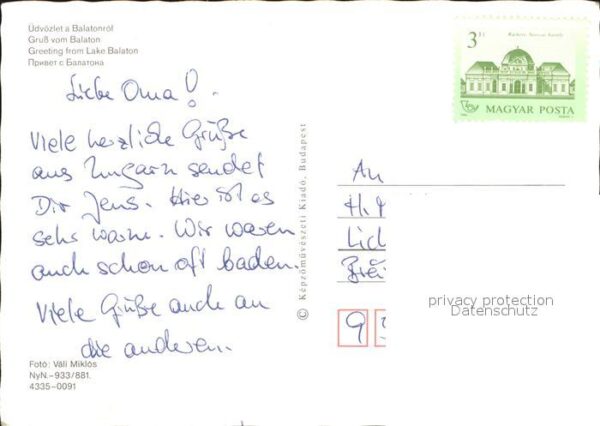 Üdvözlet a Balatonról
Gruß vom Balaton
Greeting from Lake Balaton
Привет с Балатона
Liebe Oma!
Viele herzliche Grüße
aus Ungarn sendet
Dir Jens. Hier ist es
sehr warm. Wir waren
auch schon oft baden.
Viele Grüße auch an
die anderen.
Fotó: Váli Miklós
NyN.–933/881.
4335–0091
© Képzőművészeti Kiadó, Budapest
3 Ft
MAGYAR POSTA
An
H.
privacy protection
Datenschutz
9